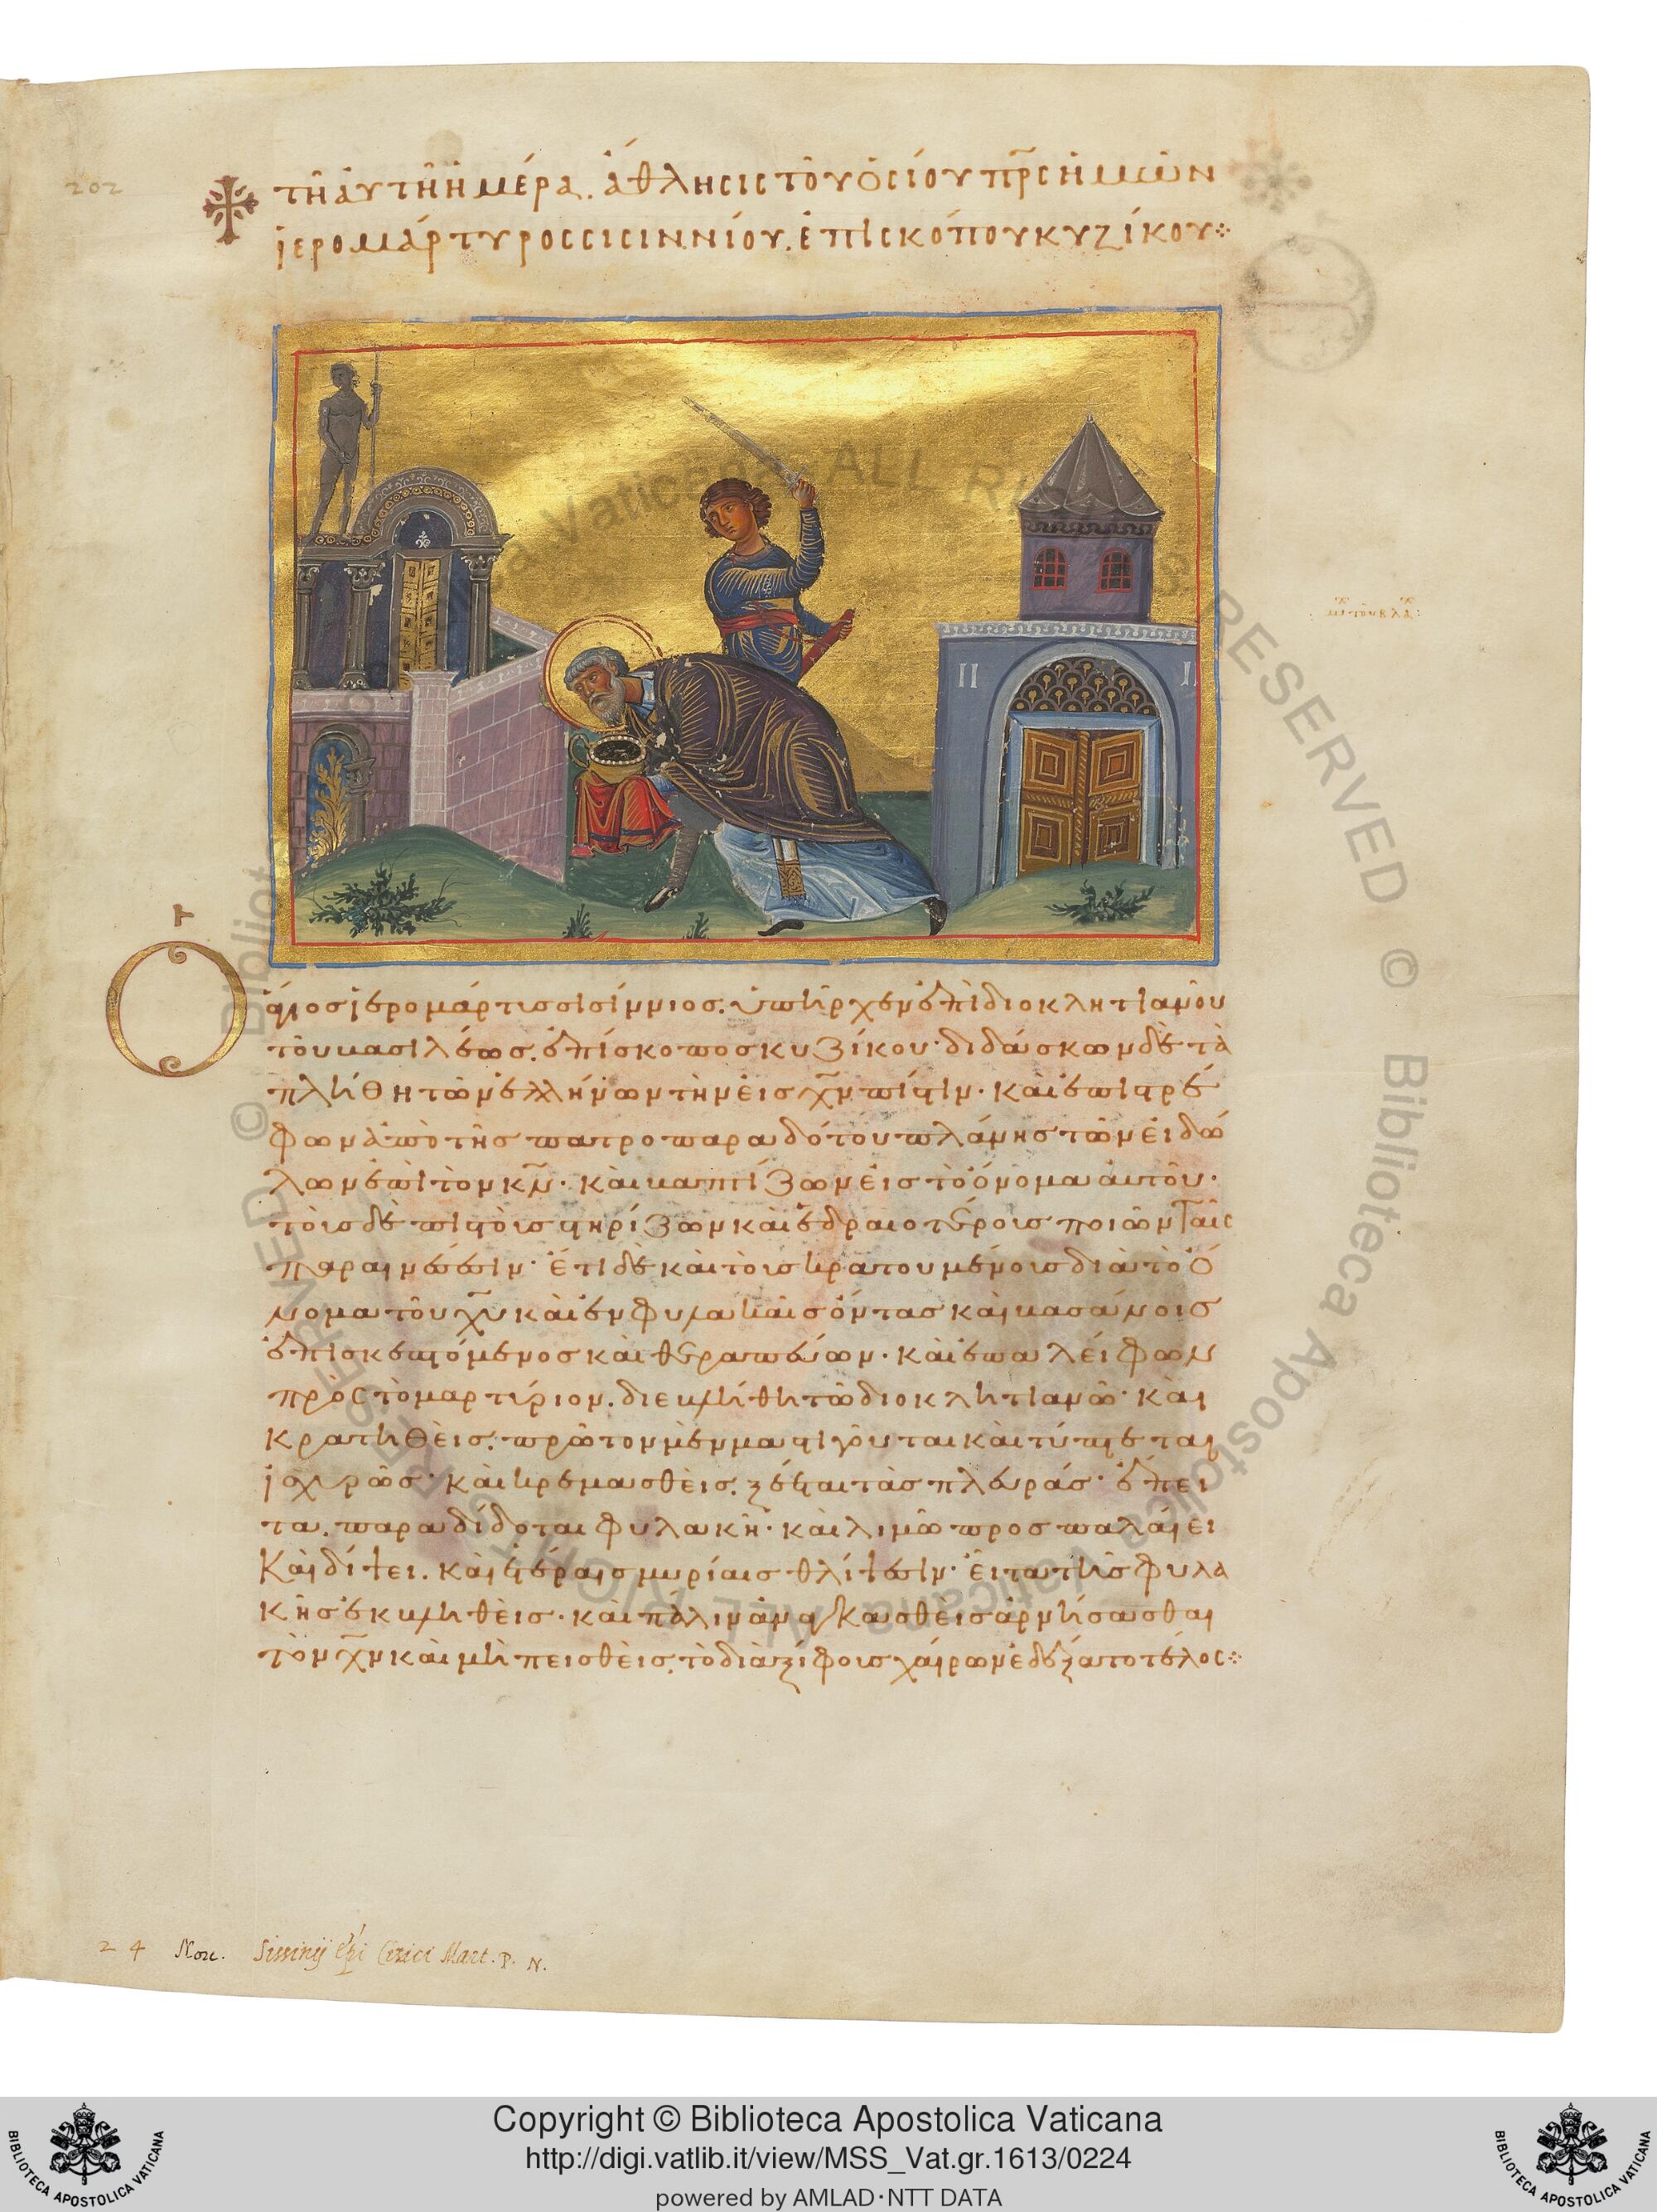 202
τῇ αὐτῇ ἡμέρα. ἄθλησις τοῦ ὁσίου πρ̅ς ἡμῶν
ἱερομάρτυρος σισιννίου. ἐπισκόπου κυζίκου
Ὁ ἅγιος ἱερομάρτυς σισίννιος. ὑπῆρχεν ἐπὶ διοκλητιανοῦ
τοῦ βασιλέως. ἐπίσκοπος κυζίκου· διδάσκων δὲ τὰ
πλήθη τῶν ἑλλήνων τὴν εἰς χ̅ν πίστιν· καὶ ἐπιστρέ
φων ἀπὸ τῆς πατροπαραδότου πλάνης τῶν εἰδώ
λων ἐπὶ τὸν κ̅ν· καὶ βαπτίζων εἰς τὸ ὄνομα αὐτοῦ·
τοὺς δὲ πιστοὺς στηρίζων καὶ ἑδραιοτέρους ποιῶν ταῖς
παραινέσεσιν· ἔτι δὲ καὶ τοὺς κρατουμένους διὰ τὸ ὄ
νομα τοῦ χ̅υ καὶ ἐν φυλακαῖς ὄντας καὶ βασάνοις
ἐπισκεπτόμενος καὶ θεραπεύων· καὶ ἐπαλείφων
πρὸς τὸ μαρτύριον. διεβλήθη τῶ διοκλητιανῶ· καὶ
κρατηθεὶς. πρῶτον μὲν μαστιγοῦται καὶ τύπτεται
ἰσχυρῶς· καὶ κρεμασθεὶς. ξέεται τὰς πλευράς· ἔπει
τα. παραδίδοται φυλακῆ· καὶ λιμῶ προσπαλαίει
καὶ δίψει. καὶ ἑτέραις μυρίαις θλίψεσιν· εἶτα τῆς φυλα
κῆς ἐκβληθεὶς· καὶ πάλιν ἀναγκασθεὶς ἀρνήσασθαι
τὸν χ̅ν καὶ μὴ πεισθεὶς. τὸ διὰ ξίφους χαίρων ἐδέξατο τέλος
24 Nou. Sissinij Epi Cizici Mart. P. N.
Copyright © Biblioteca Apostolica Vaticana
http://digi.vatlib.it/view/MSS_Vat.gr.1613/0224
powered by AMLAD·NTT DATA
BIBLIOTECA APOSTOLICA VATICANA
BIBLIOTECA APOSTOLICA VATICANA
© Biblioteca Apostolica Vaticana ALL RIGHTS RESERVED